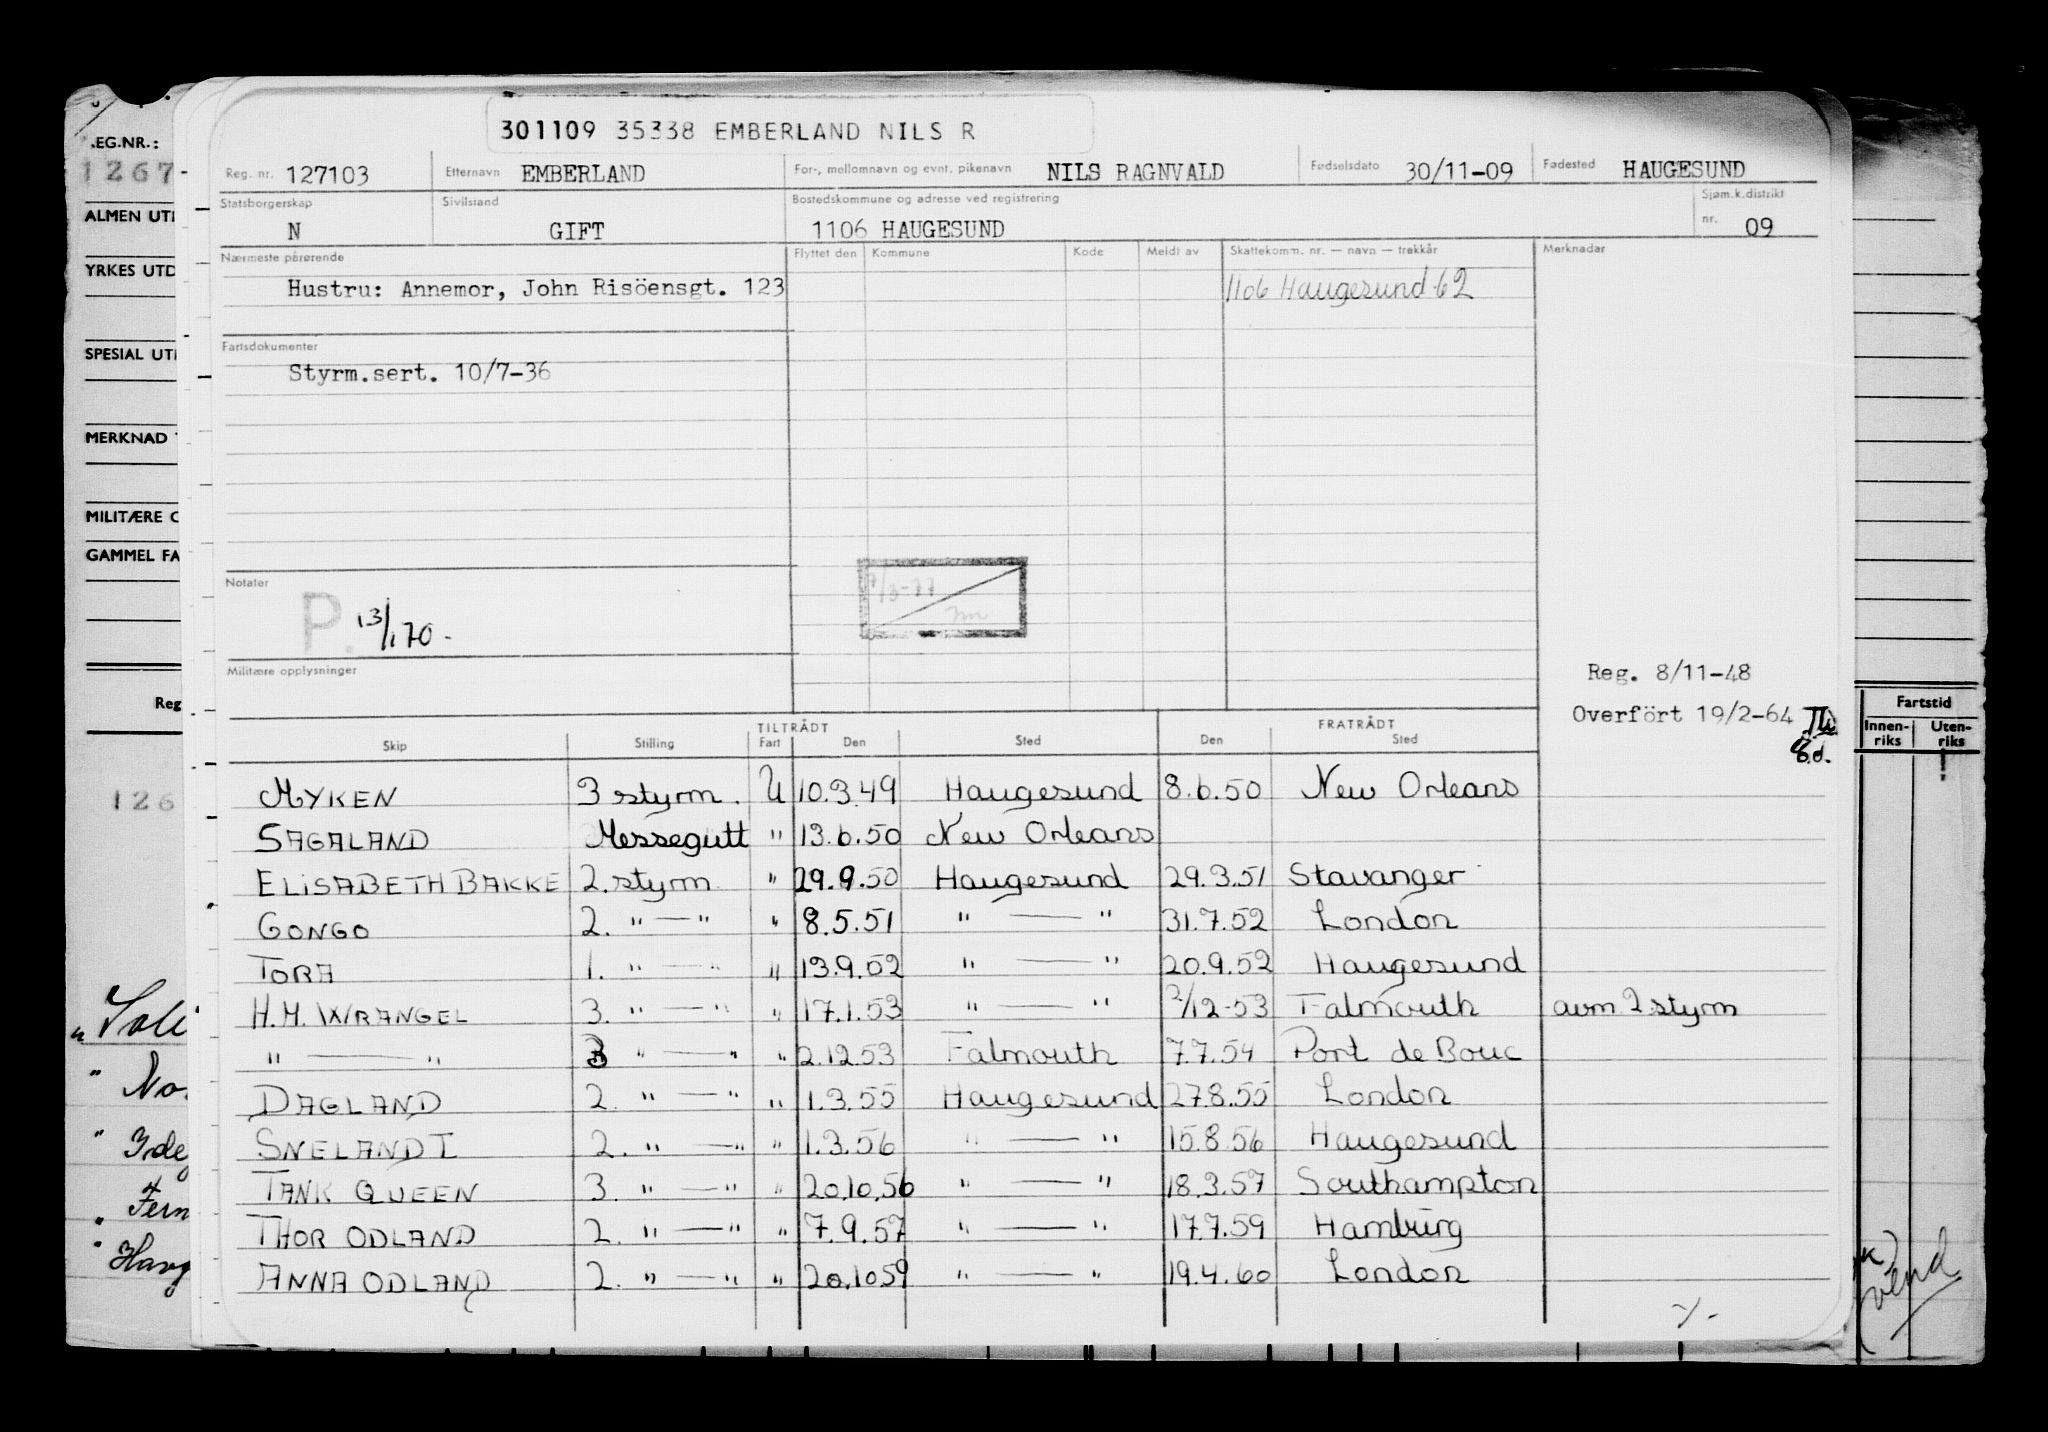 301109 35338 EMBERLAND NILS R
Reg. nr. 127103 Etternavn EMBERLAND For-, mellomnavn og evnt. pikenavn NILS RAGNVALD Fødselsdato 30/11-09 Fødested HAUGESUND
Statsborgerskap N Sivilstand GIFT Bostedskommune og adresse ved registrering 1106 HAUGESUND Sjøm.k.distrikt nr. 09
Nærmeste pårørende Flyttet den Kommune Kode Meldt av Skattekomm. nr. — navn — trekkår Merknader
Hustru: Annemor, John Risöensgt. 123 1106 Haugesund 62
Fartsdokumenter
Styrm.sert. 10/7-36
Notater
P. 13/1 70-
/3-77
Militære opplysninger
Reg. 8/11-48
Overfört 19/2-64
TILTRÅDT FRATRÅDT
Skip Stilling Fart Den Sted Den Sted
MYKEN 3 styrm. U 10.3.49 Haugesund 8.6.50 New Orleans
SAGALAND Messegutt " 13.6.50 New Orleans
ELISABETH BAKKE 2. styrm " 29.9.50 Haugesund 29.3.51 Stavanger
GONGO 2. " — " " 8.5.51 " — " 31.7.52 London
TORA 1. " — " " 13.9.52 " — " 20.9.52 Haugesund
H.M. WRANGEL 3. " — " " 17.1.53 " — " 2/12-53 Falmouth avm 2 styrm
" — " 3 " — " " 2.12.53 Falmouth 7.7.54 Port de Bouc
DAGLAND 2. " — " " 1.3.55 Haugesund 27.8.55 London
SNELAND I 2. " — " " 1.3.56 " — " 15.8.56 Haugesund
TANK QUEEN 3. " — " " 20.10.56 " — " 18.3.57 Southampton
THOR ODLAND 2. " — " " 7.9.57 " — " 17.7.59 Hamburg
ANNA ODLAND 2. " — " " 20.10 59 " — " 19.4.60 London
-/-
EG.NR.:
1267
ALMEN UT
YRKES UTD
SPESIAL UT
MERKNAD
MILITÆRE
GAMMEL FA
Reg
126
Fartstid
Innen-riks Uten-riks
vend